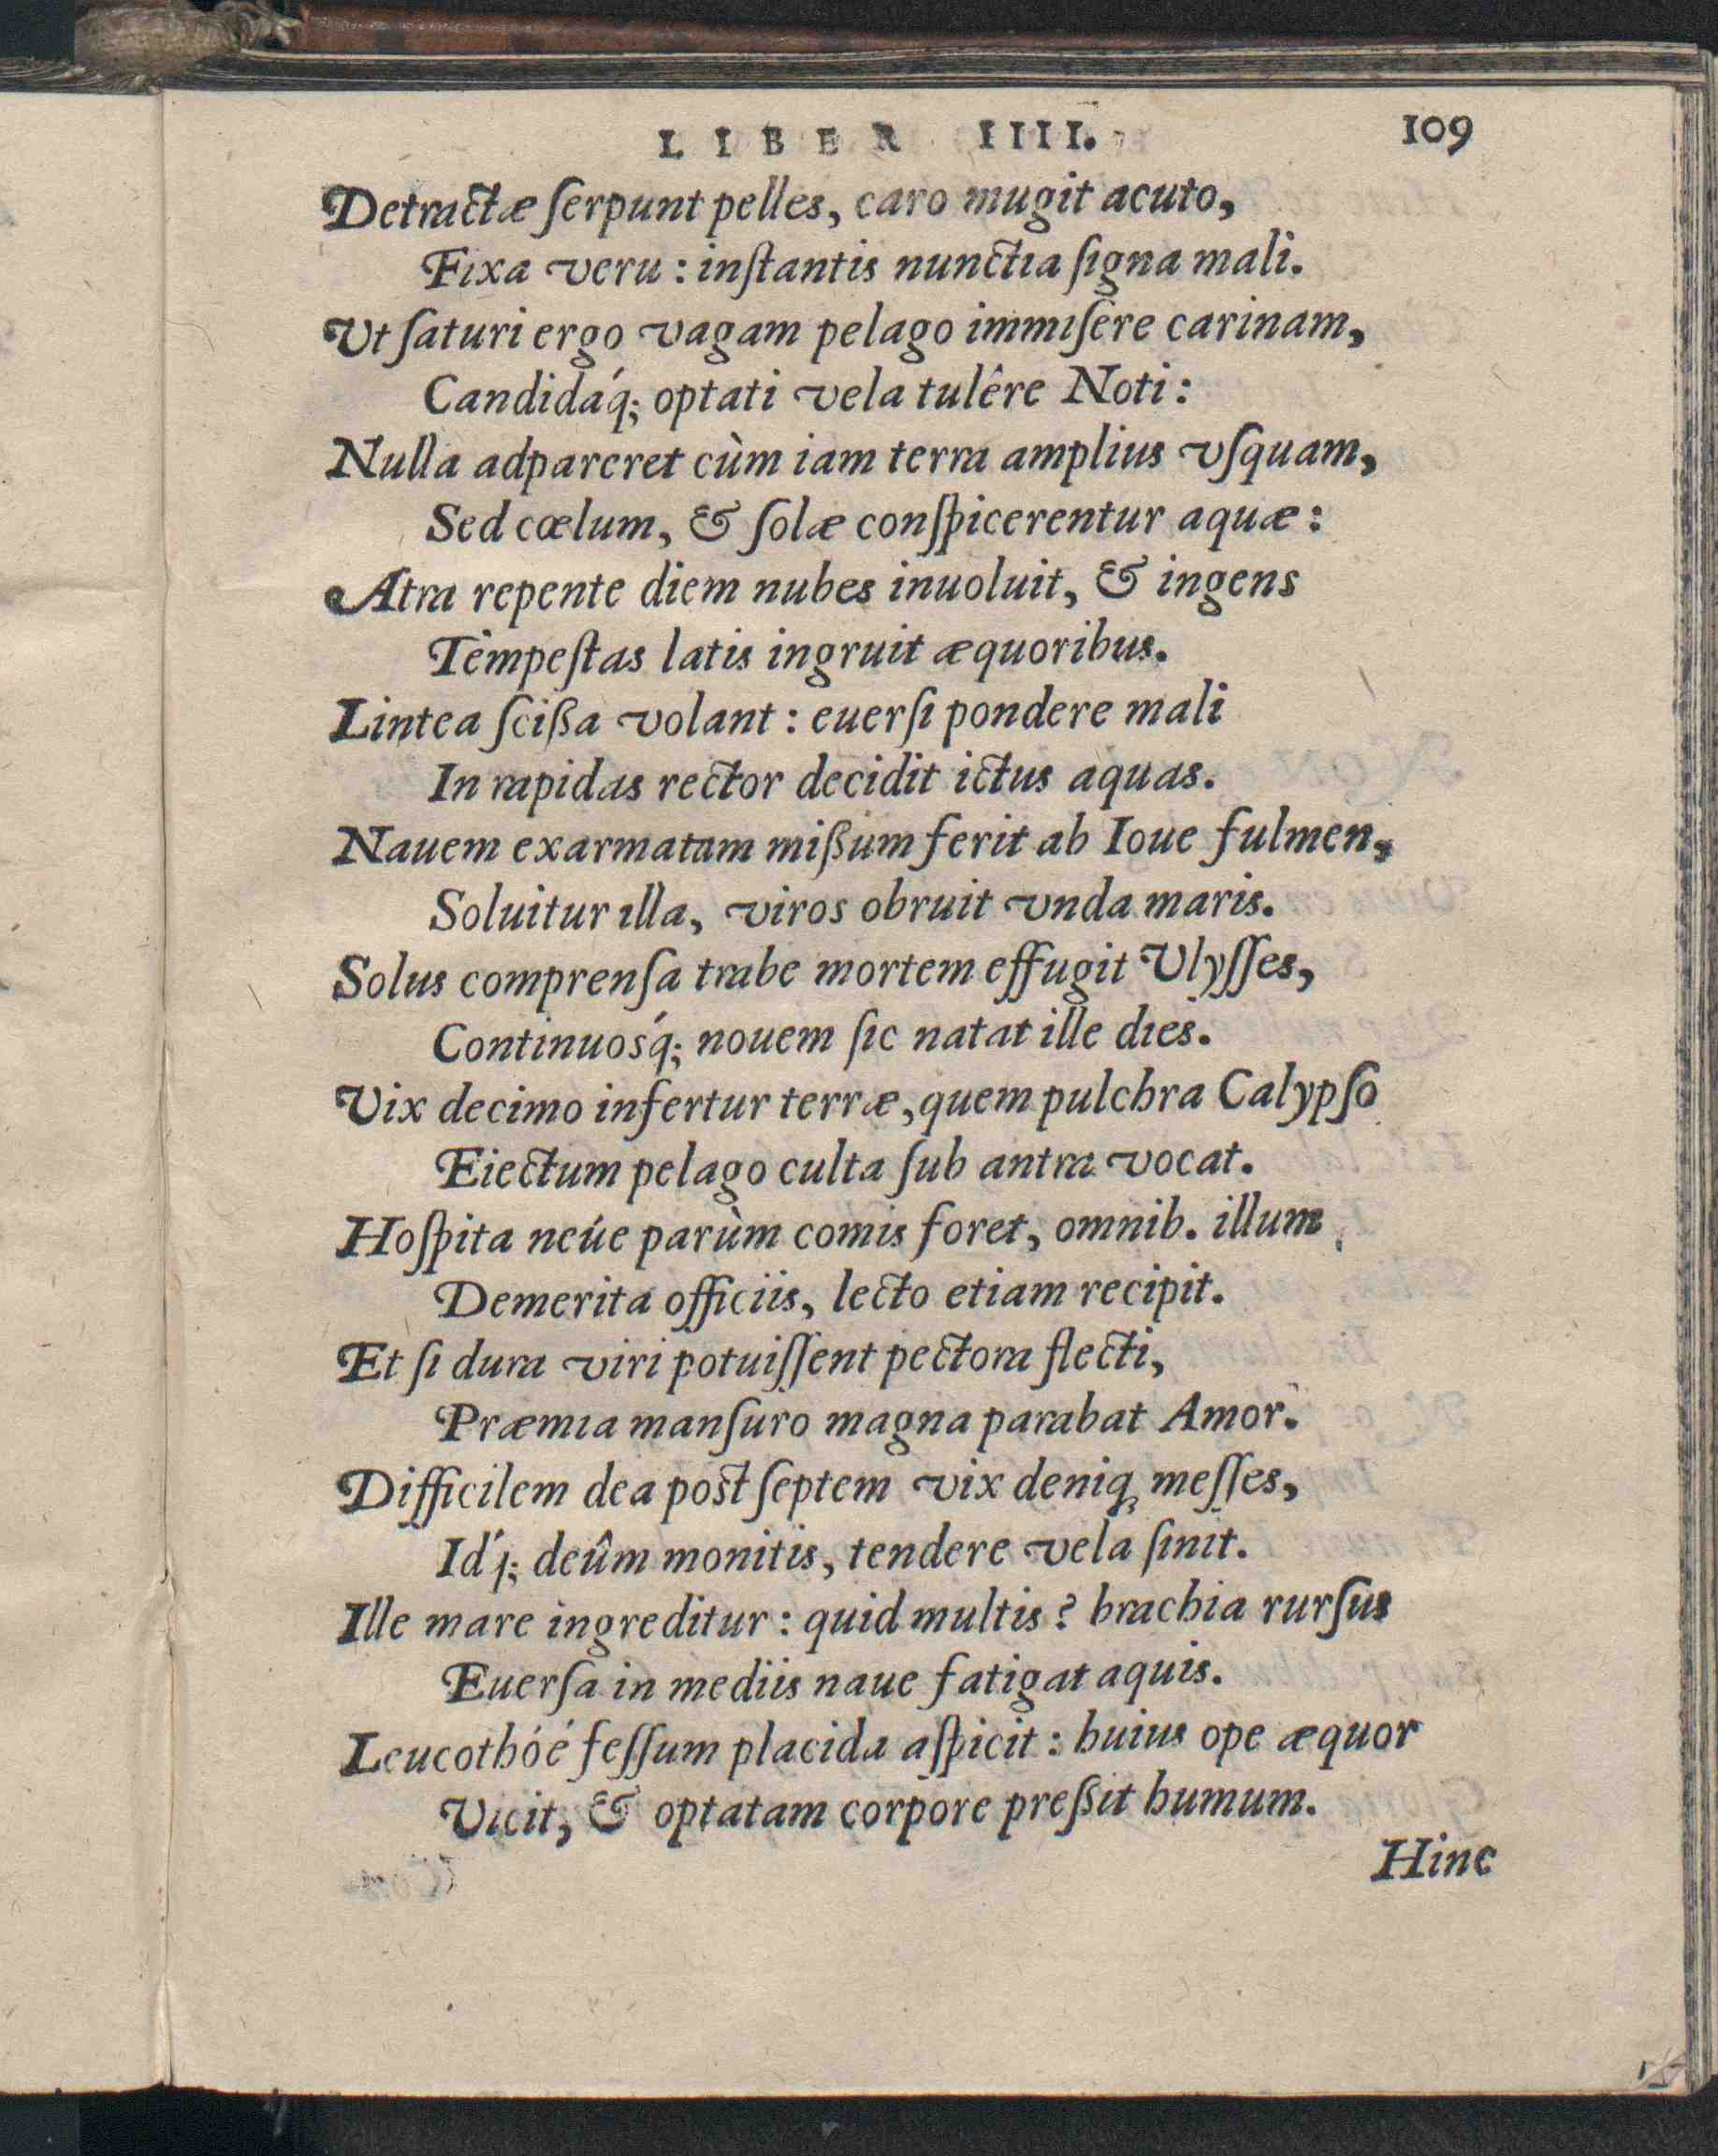 LIBER IIII. 109
Detractæ ſerpunt pelles, caro mugit acuto,
Fixa veru: inſtantis nunctia ſigna mali.
Vt ſaturi ergo vagam pelago immiſere carinam,
Candidáq; optati vela tulêre Noti:
Nulla adpareret cùm iam terra amplius vſquam,
Sed cœlum, & ſolæ conſpicerentur aquæ:
Atra repente diem nubes inuoluit, & ingens
Tempeſtas latis ingruit æquoribus.
Lintea ſcißa volant: euerſi pondere mali
In rapidas rector decidit ictus aquas.
Nauem exarmatam mißum ferit ab Ioue fulmen,
Soluitur illa, viros obruit vnda maris.
Solus comprenſa trabe mortem effugit Vlyſſes,
Continuosq́; nouem ſic natat ille dies.
Vix decimo infertur terræ, quem pulchra Calypſo
Eiectum pelago culta ſub antra vocat.
Hoſpita neúe parùm comis foret, omnib. illum
Demerita officiis, lecto etiam recipit.
Et ſi dura viri potuiſſent pectora flecti,
Præmia manſuro magna parabat Amor.
Difficilem dea post ſeptem vix deniq; meſſes,
Idq́; deûm monitis, tendere vela ſinit.
Ille mare ingreditur: quid multis? brachia rurſus
Euerſa in mediis naue fatigat aquis.
Leucothóé feſſum placida aſpicit: huius ope æquor
Vicit, & optatam corpore preßit humum.
Hinc